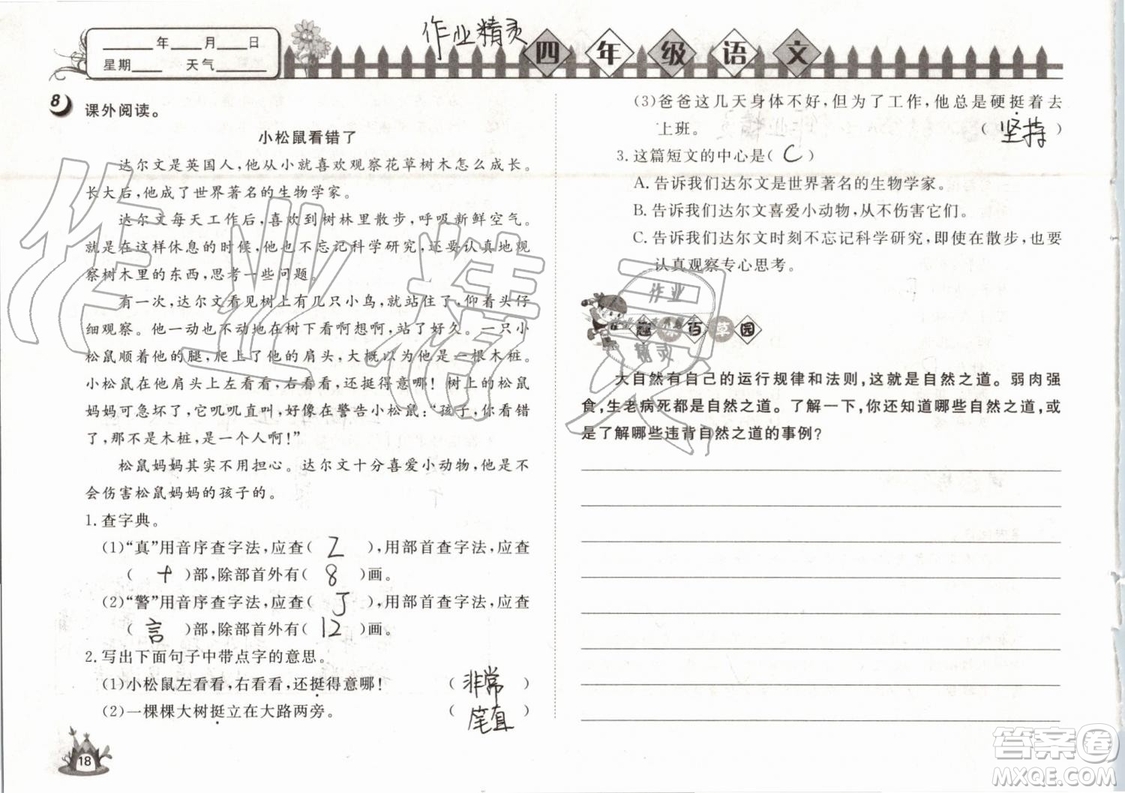 ____年____月____日
星期____ 天气____
作业精灵
四年级语文
8 课外阅读。
小松鼠看错了
达尔文是英国人，他从小就喜欢观察花草树木怎么成长。
长大后，他成了世界著名的生物学家。
达尔文每天工作后，喜欢到树林里散步，呼吸新鲜空气。
就是在这样休息的时候，他也不忘记科学研究，还要认真地观
察树木里的东西，思考一些问题。
有一次，达尔文看见树上有几只小鸟，就站在那里仰着头仔
细观察。为了不惊动小鸟，他一动不动，站了好久。一只小
松鼠居然顺着他的腿，爬上了他的肩头，大概以为他是一根木桩。
小松鼠在他肩上左看看右看看，还挺得意哪！树上的松鼠
妈妈可急坏了，它叽叽直叫，好像在警告小松鼠：“孩子，你看错
了，那不是木桩，是一个人啊！”
松鼠妈妈其实不用担心。达尔文十分喜爱小动物，他是不
会伤害松鼠妈妈的孩子的。
1.查字典。
(1)“真”用音序查字法，应查( Z )，用部首查字法，应查
( 十 )部，除部首外有( 8 )画。
(2)“警”用音序查字法，应查( J )，用部首查字法，应查
( 言 )部，除部首外有( 12 )画。
2.写出下面句子中带点字的意思。
(1)小松鼠左看看，右看看，还挺得意哪！ ( 非常 )
(2)一棵棵大树挺立在大路两旁。 ( 笔直 )
18
(3)爸爸这几天身体不好，但为了工作，他总是硬挺着去
上班。 ( 坚持 )
3.这篇短文的中心是( C )
A.告诉我们达尔文是世界著名的生物学家。
B.告诉我们达尔文喜爱小动物，从不伤害它们。
C.告诉我们达尔文时刻不忘记科学研究，即使在散步，也要
认真观察专心思考。
作业
精灵
百草园
大自然有自己的运行规律和法则，这就是自然之道。弱肉强
食，生老病死都是自然之道。了解一下，你还知道哪些自然之道，或
是了解哪些违背自然之道的事例？
作业精灵
答案圈
MXQE.COM